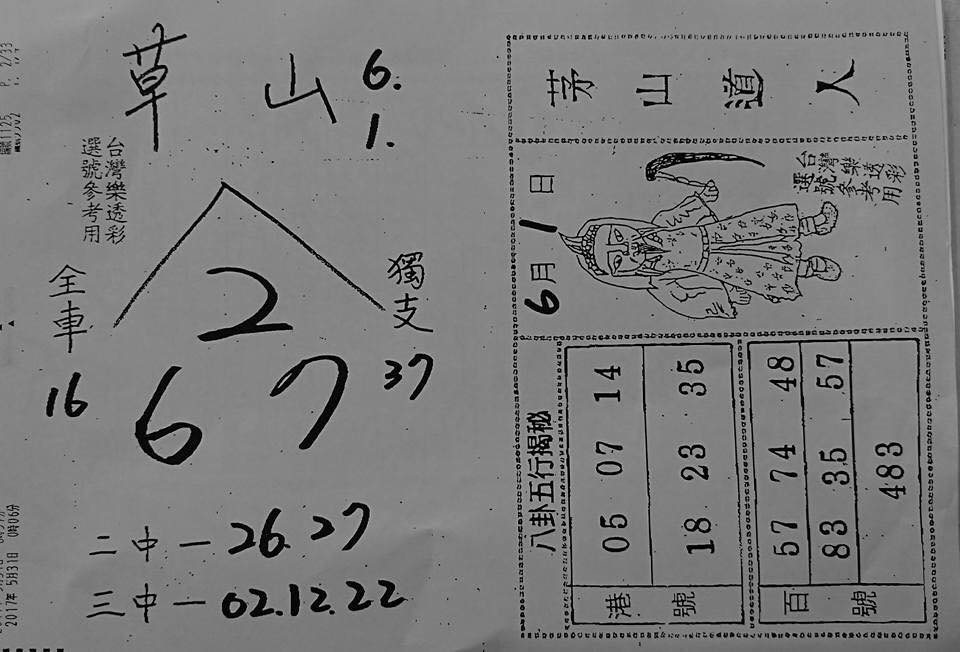 草山 6.
1.
台灣樂透彩
選號參考用
全車
獨支
2
16
6 7
37
二中一26.27
三中一02.12.22
2017年 5月31日 0時06分
茅山道人
6月1日
台灣樂透彩
選號參考用
八卦五行揭秘
港 05 07 14
號 18 23 35
百 57 74 48
號 83 35 57
483